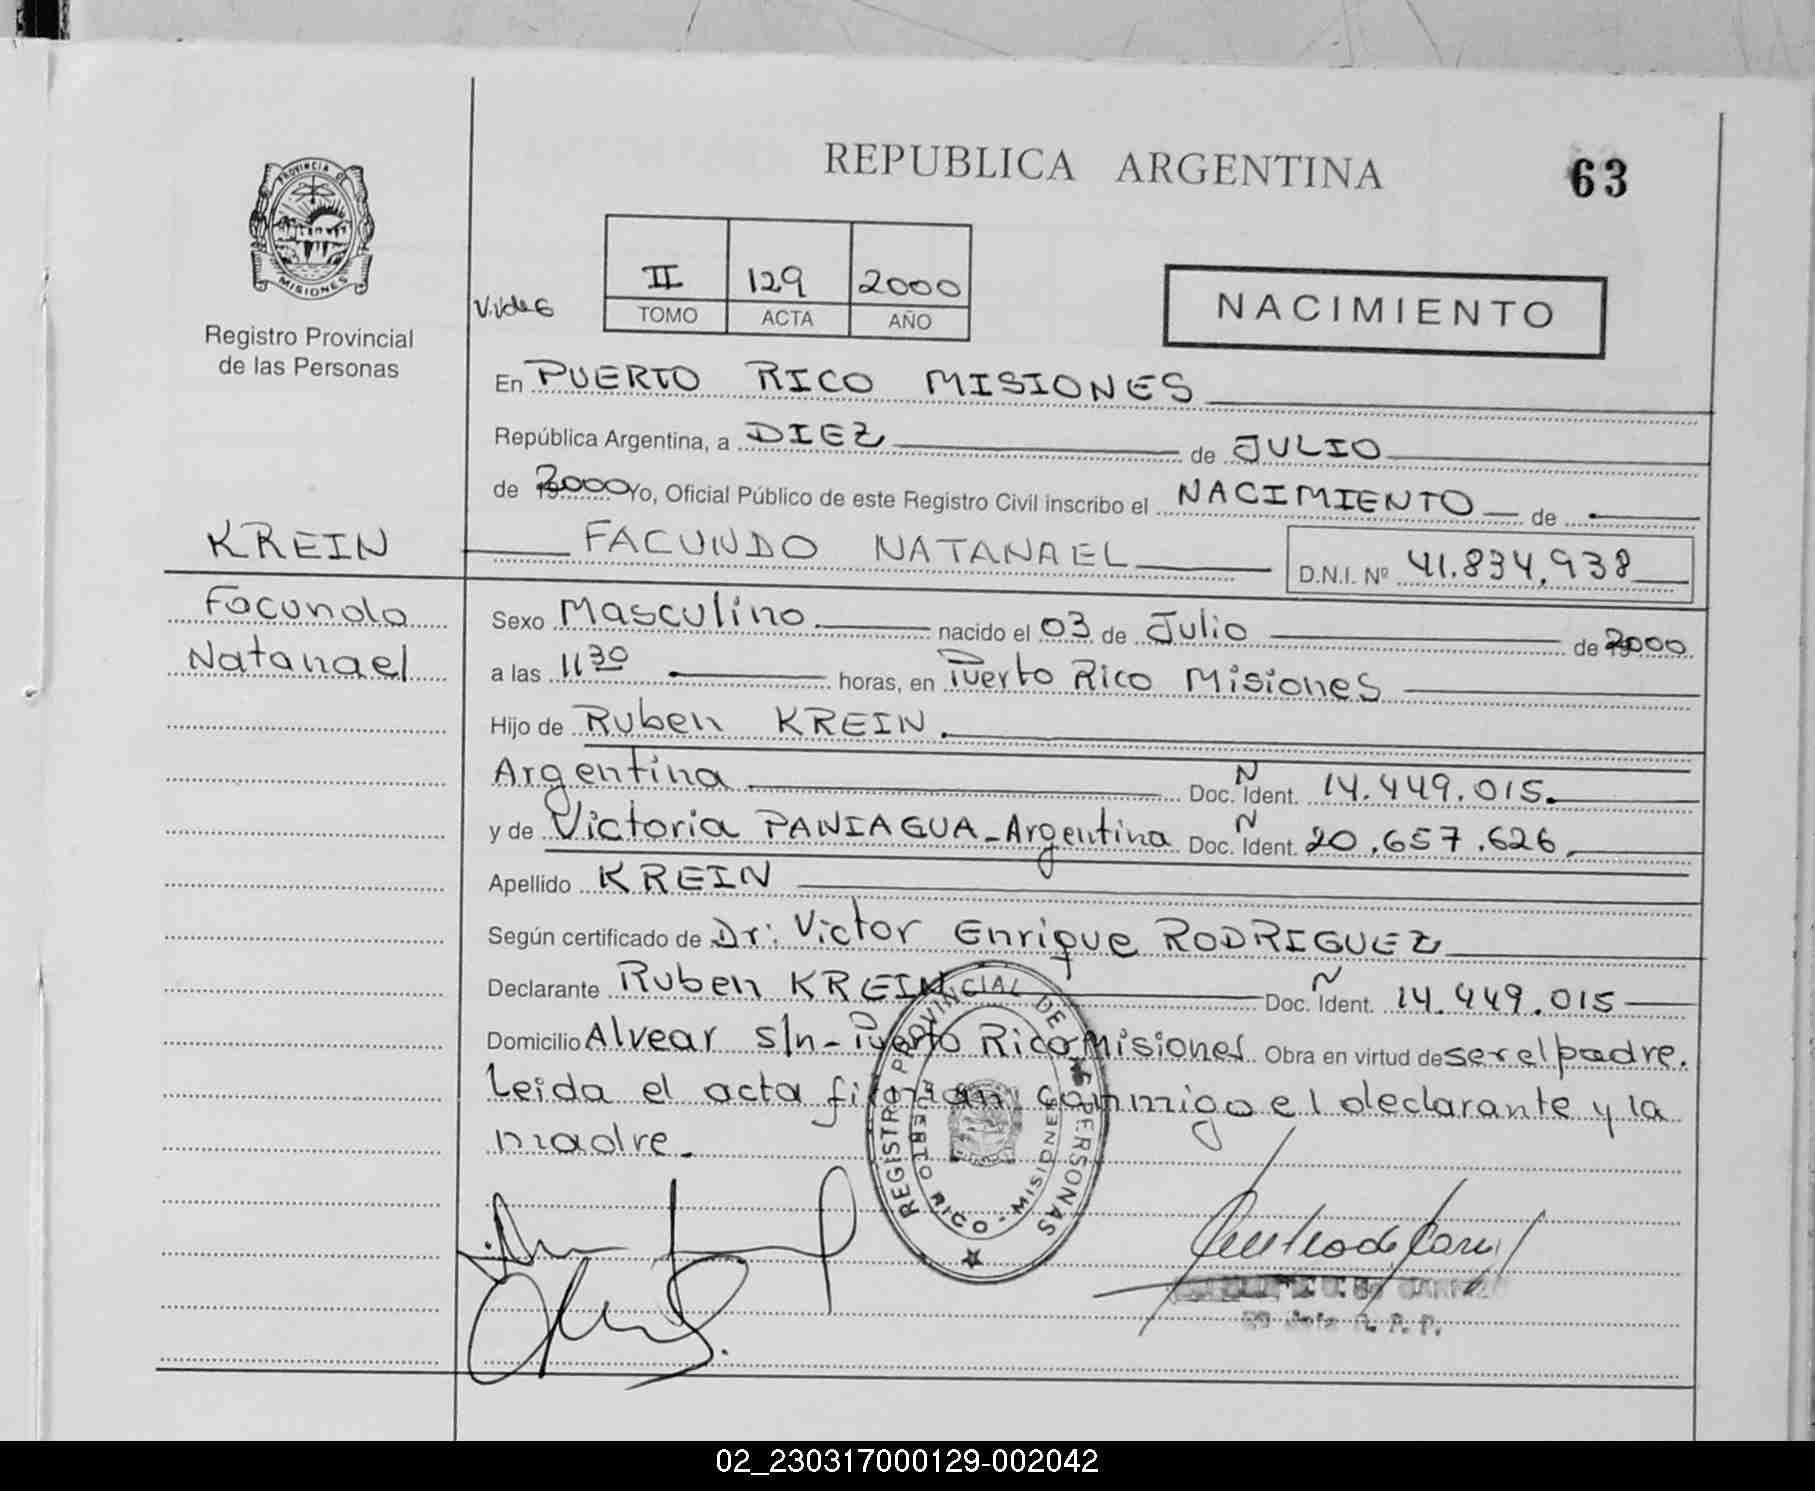 REPUBLICA ARGENTINA
63
PROVINCIA DE
MISIONES
Registro Provincial
de las Personas
II 129 2000
TOMO ACTA AÑO
NACIMIENTO
En PUERTO RICO MISIONES
República Argentina, a DIEZ de JULIO
de 2000 Yo, Oficial Público de este Registro Civil inscribo el NACIMIENTO de
KREIN
FACUNDO NATANAEL
D.N.I. Nº 41.834.938
Facundo
Natanael
Sexo Masculino nacido el 03 de Julio de 2000
a las 11 30 horas, en Puerto Rico Misiones
Hijo de Ruben KREIN.
Argentina Doc. Ñ Ident. 14.449.015.
y de Victoria PANIAGUA - Argentina Doc. Ñ Ident. 20.657.626.
Apellido KREIN
Según certificado de Dr: Victor Enrique RODRIGUEZ
Declarante Ruben KREIN Doc. Ñ Ident. 14.449.015
Domicilio Alvear s/n - Puerto Rico Misiones Obra en virtud de ser el padre.
Leida el acta firman conmigo el declarante y la
madre.
REGISTRO PROVINCIAL DE PERSONAS
PUERTO RICO - MISIONES
02_230317000129-002042